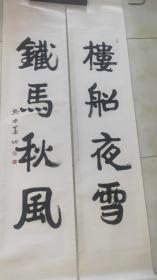 樓船夜雪
鐵馬秋風